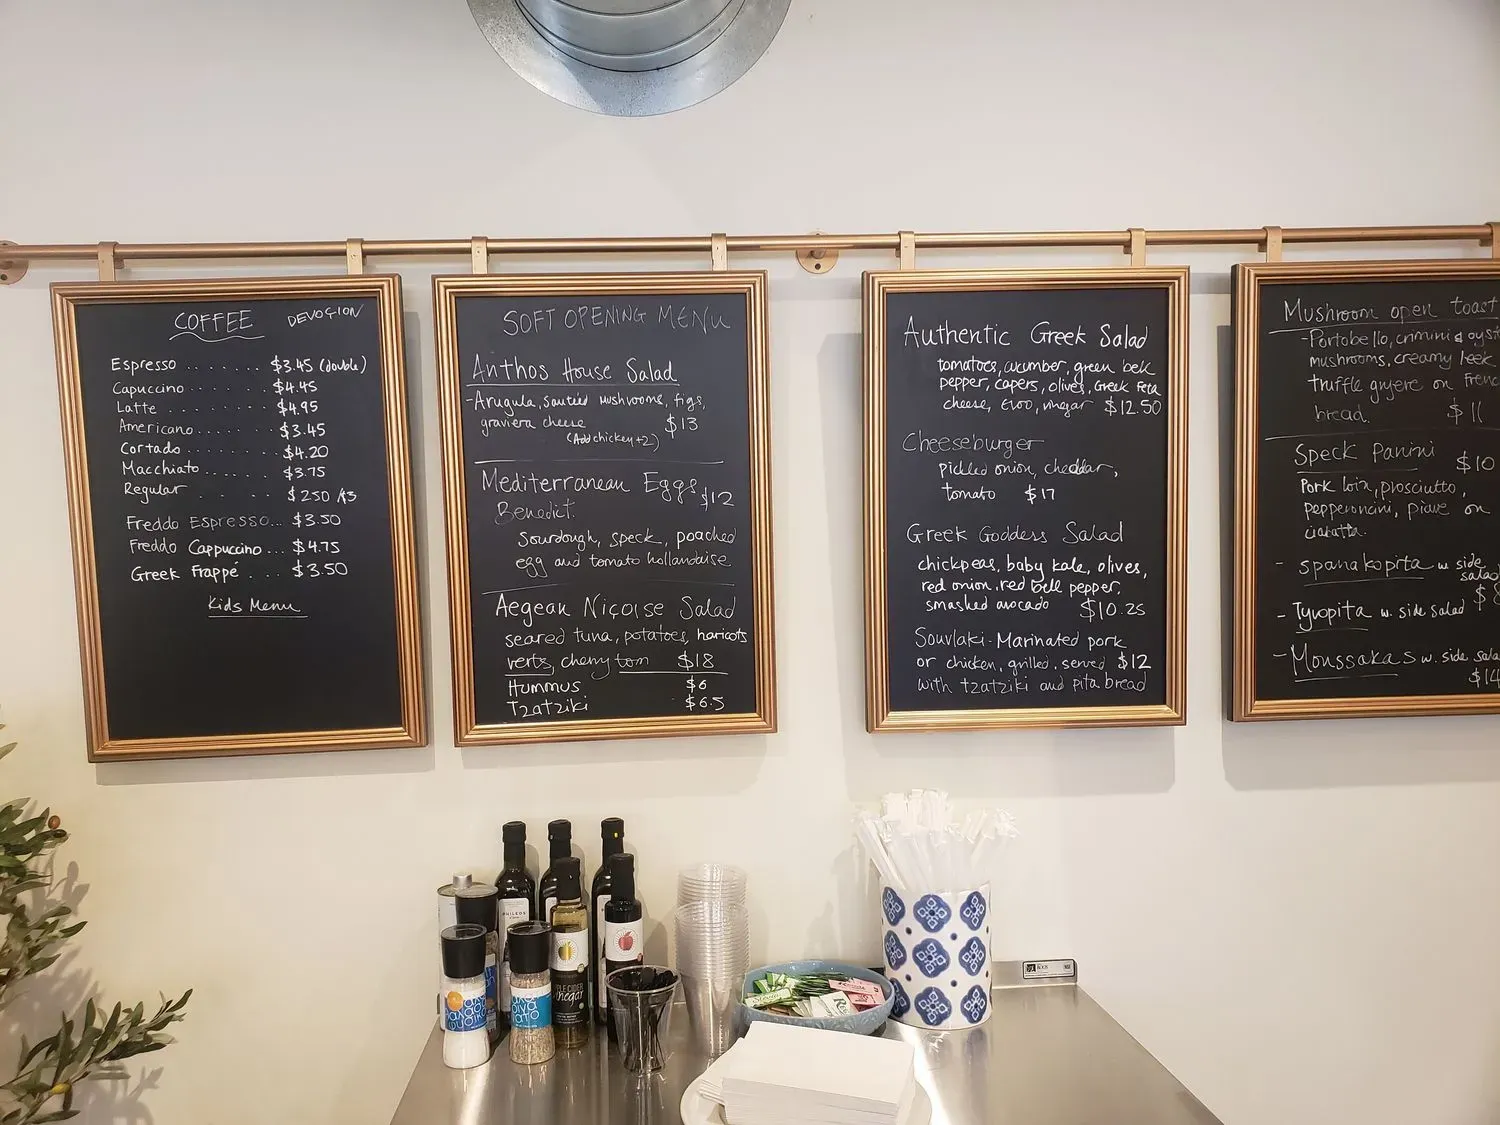 COFFEE DEVOCION
Espresso ....... $3.45 (double)
Capuccino ...... $4.45
Latte ........ $4.95
Americano ...... $3.45
Cortado ...... $4.20
Macchiato ...... $3.75
Regular ..... $2.50 /$3
Freddo Espresso... $3.50
Freddo Cappuccino... $4.75
Greek Frappé ... $3.50
Kids Menu
SOFT OPENING MENU
Anthos House Salad
-Arugula, sautéed mushrooms, figs,
graviera cheese $13
(Add chicken +2)
Mediterranean Eggs $12
Benedict:
Sourdough, speck, poached
egg and tomato hollandaise
Aegean Niçoise Salad
seared tuna, potatoes, haricots
verts, cherry tom $18
Hummus $6
Tzatziki $6.5
Authentic Greek Salad
tomatoes, cucumber, green bell
pepper, capers, olives, Greek Feta
cheese, EVOO, vinegar $12.50
Cheeseburger
pickled onion, cheddar,
tomato $17
Greek Goddess Salad
chickpeas, baby kale, olives,
red onion, red bell pepper,
smashed avocado $10.25
Souvlaki - Marinated pork
or chicken, grilled, served $12
with tzatziki and pita bread
Mushroom open toast
-Portobello, crimini &
mushrooms, creamy leek
truffle gruyere on French
bread. $11
Speck Panini $10
Pork loin, prosciutto,
pepperoncini, piave on
ciabatta.
- Spanakopita w side
salad
$8
- Tyropita w. side salad
- Moussakas w. side
$14
APPLE CIDER
vinegar